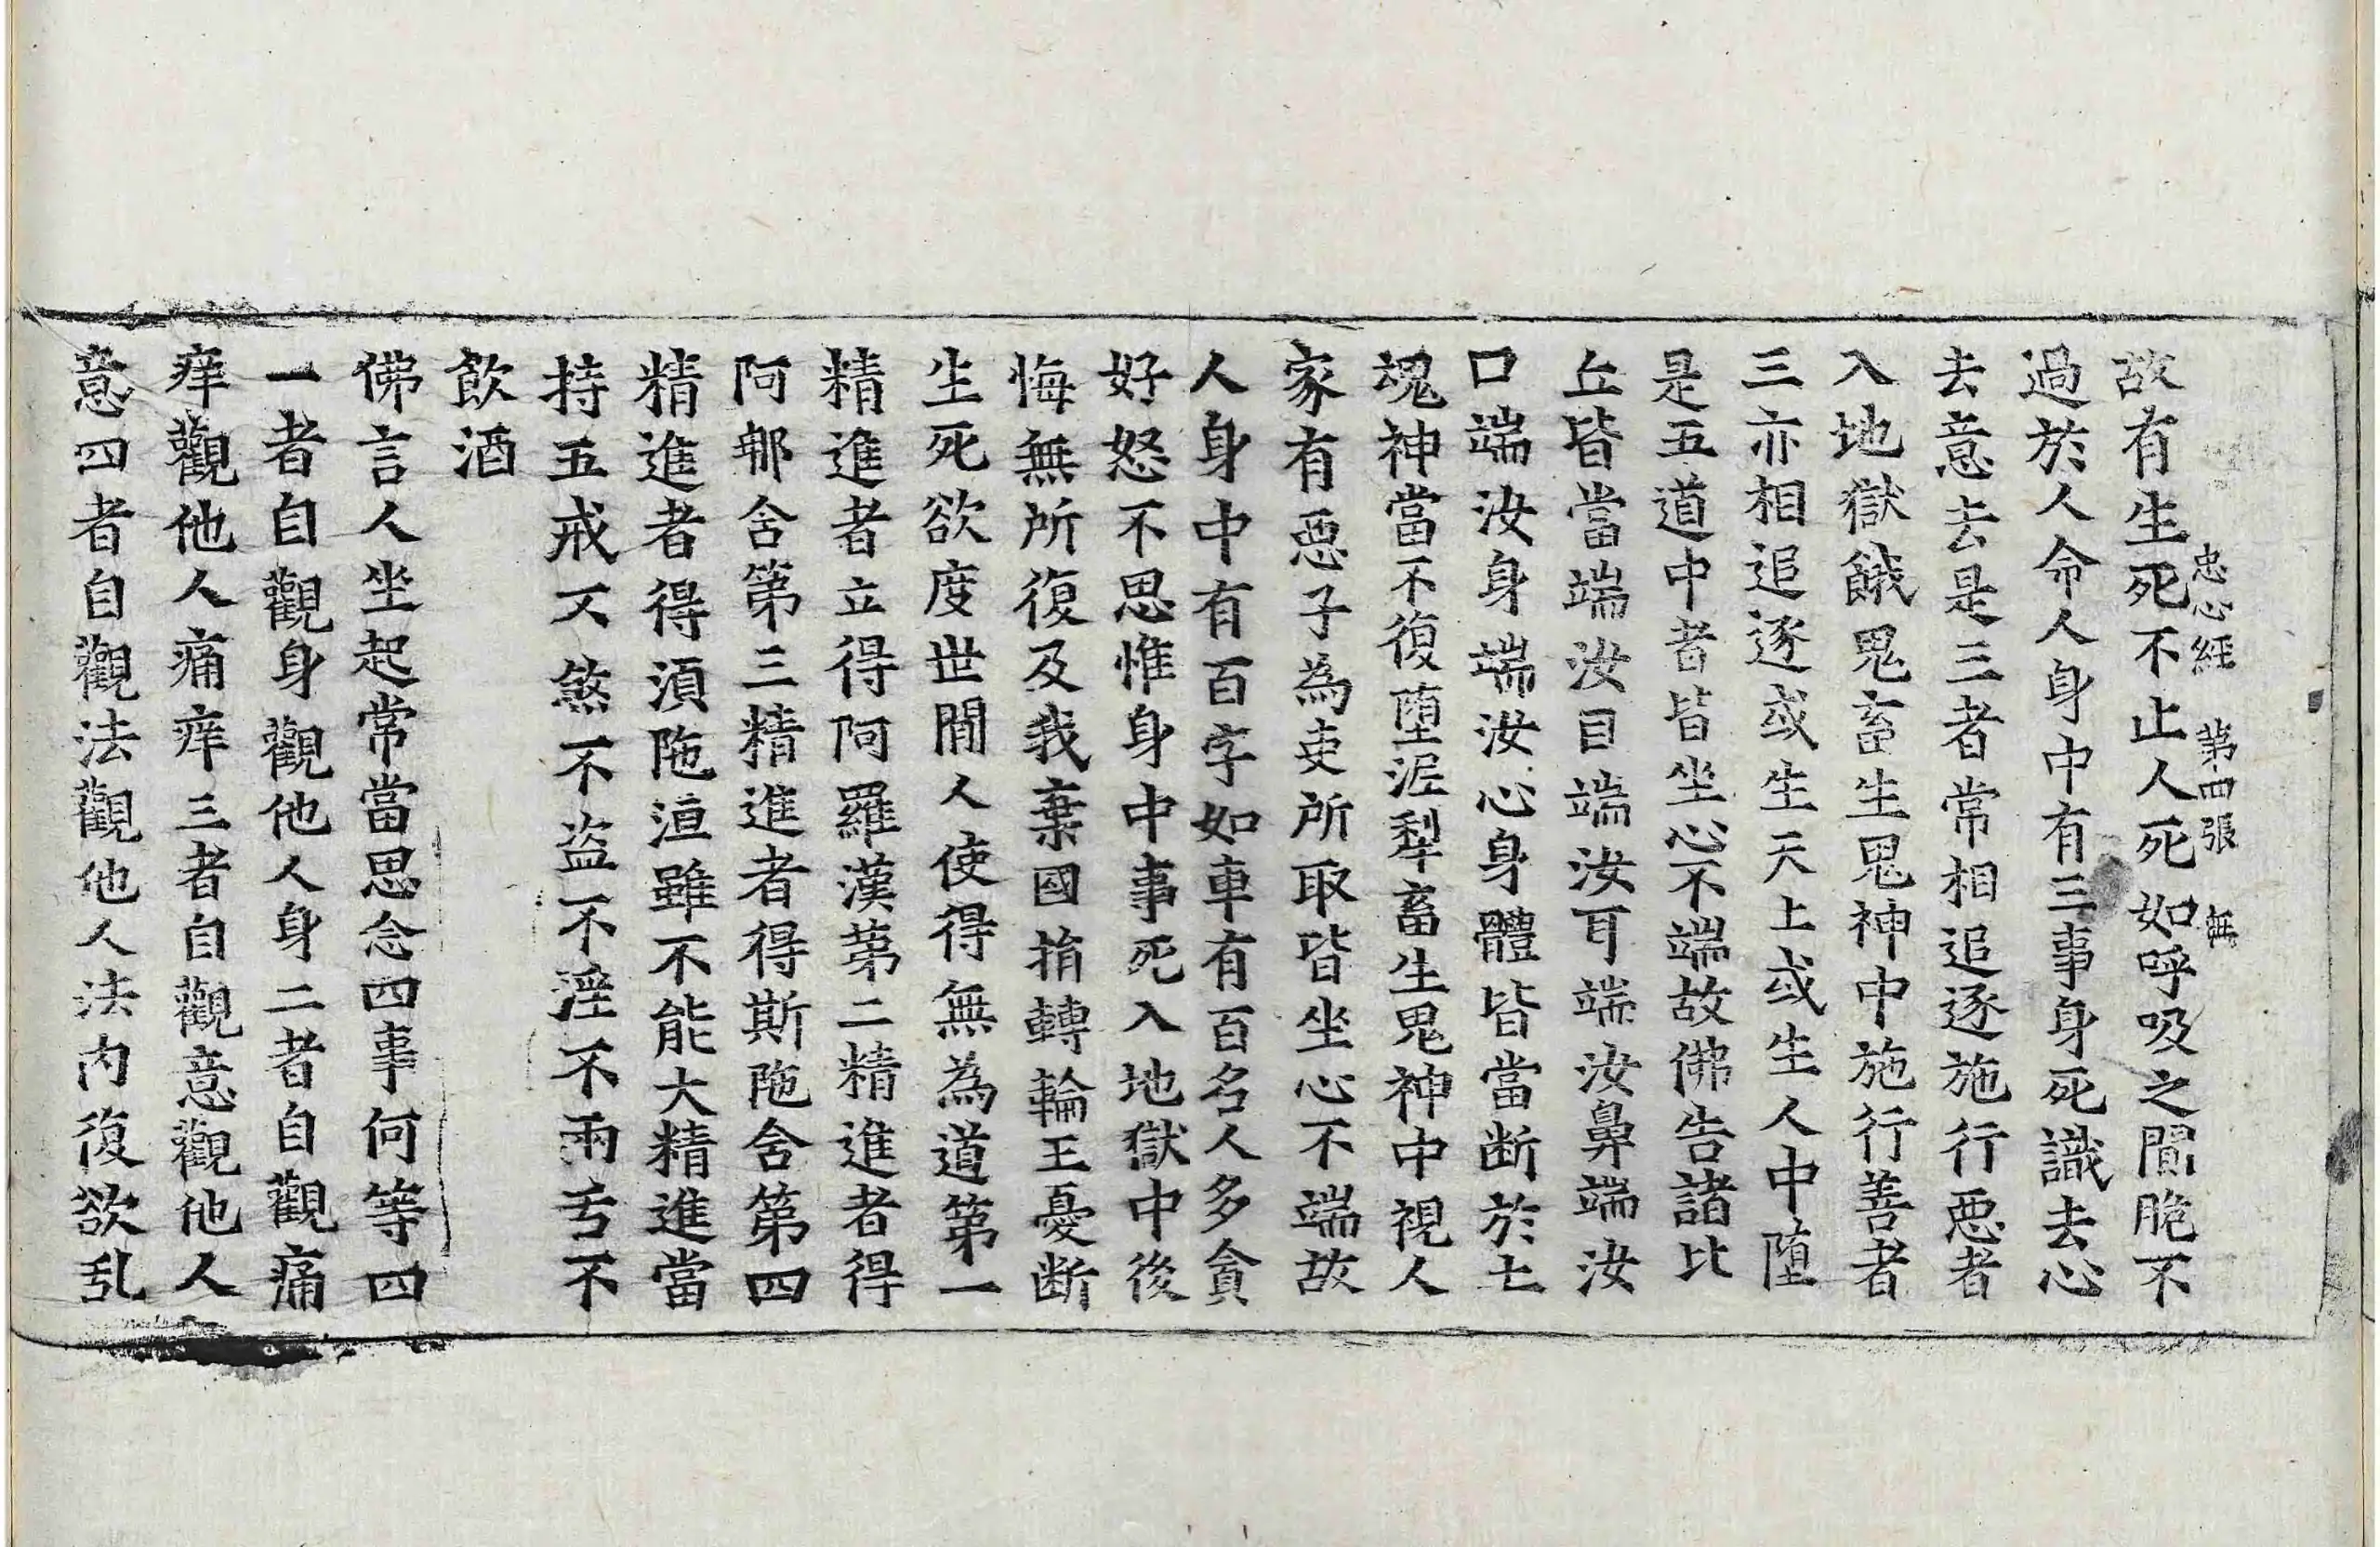 忠心經 第四張 無
故有生死不止人死如呼吸之間脆不
過於人命人身中有三事身死識去心
去意去是三者常相追逐施行惡者
入地獄餓鬼畜生鬼神中施行善者
三亦相追逐或生天上或生人中墮
是五道中者皆坐心不端故佛告諸比
丘皆當端汝目端汝耳端汝鼻端汝
口端汝身端汝心身體皆當断於土
魂神當不復墮泥犁畜生鬼神中視人
家有惡子為吏所取皆坐心不端故
人身中有百字如車有百名人多貪
好怒不思惟身中事死入地獄中後
悔無所復及我棄國捐轉輪王憂断
生死欲度世間人使得無為道第一
精進者立得阿羅漢第二精進者得
阿那舍第三精進者得斯陁舍第四
精進者得湏陁洹雖不能大精進當
持五戒不煞不盗不淫不兩舌不
飲酒
佛言人坐起常當思念四事何等四
一者自觀身觀他人身二者自觀痛
痒觀他人痛痒三者自觀意觀他人
意四者自觀法觀他人法内復欲乱